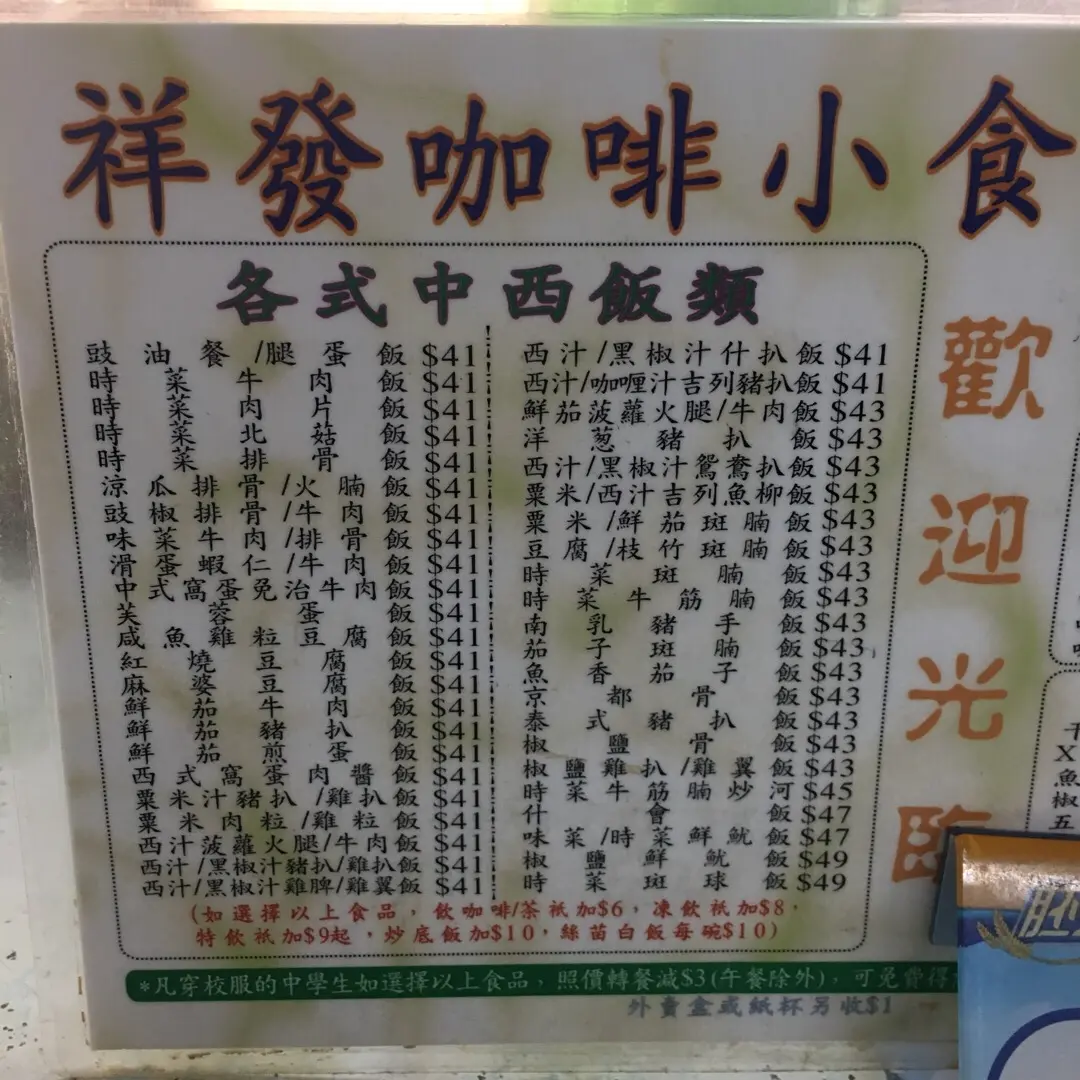 祥發咖啡小食
各式中西飯類
豉油餐/腿蛋飯 $41
時菜牛肉飯 $41
時菜肉片飯 $41
時菜北菇飯 $41
時菜排骨飯 $41
涼瓜排骨/火腩飯 $41
豉椒排骨/牛肉飯 $41
味菜牛肉/排骨飯 $41
滑蛋蝦仁/牛肉飯 $41
中式窩蛋免治牛肉飯 $41
芙蓉蛋飯 $41
咸魚雞粒豆腐飯 $41
紅燒豆腐飯 $41
麻婆豆腐飯 $41
鮮茄牛肉飯 $41
鮮茄豬扒飯 $41
鮮茄煎蛋飯 $41
西式窩蛋肉醬飯 $41
粟米汁豬扒/雞扒飯 $41
粟米肉粒/雞粒飯 $41
西汁菠蘿火腿/牛肉飯 $41
西汁/黑椒汁豬扒/雞扒飯 $41
西汁/黑椒汁雞脾/雞翼飯 $41
西汁/黑椒汁什扒飯 $41
西汁/咖喱汁吉列豬扒飯 $41
鮮茄菠蘿火腿/牛肉飯 $43
洋葱豬扒飯 $43
西汁/黑椒汁鴛鴦扒飯 $43
粟米/西汁吉列魚柳飯 $43
粟米/鮮茄斑腩飯 $43
豆腐/枝竹斑腩飯 $43
時菜斑腩飯 $43
時菜牛筋腩飯 $43
南乳豬手飯 $43
茄子斑腩飯 $43
魚香茄子飯 $43
京都骨飯 $43
泰式豬扒飯 $43
椒鹽骨飯 $43
椒鹽雞扒/雞翼飯 $43
時菜牛筋腩炒河 $45
什會飯 $47
味菜/時菜鮮魷飯 $47
椒鹽鮮魷飯 $49
時菜斑球飯 $49
(如選擇以上食品，飲咖啡/茶祇加$6，凍飲祇加$8，
特飲祇加$9起，炒底飯加$10，絲苗白飯每碗$10)
*凡穿校服的中學生如選擇以上食品，照價轉餐減$3(午餐除外)，可免費得
外賣盒或紙杯另收$1
歡迎光臨
X
魚
椒
五